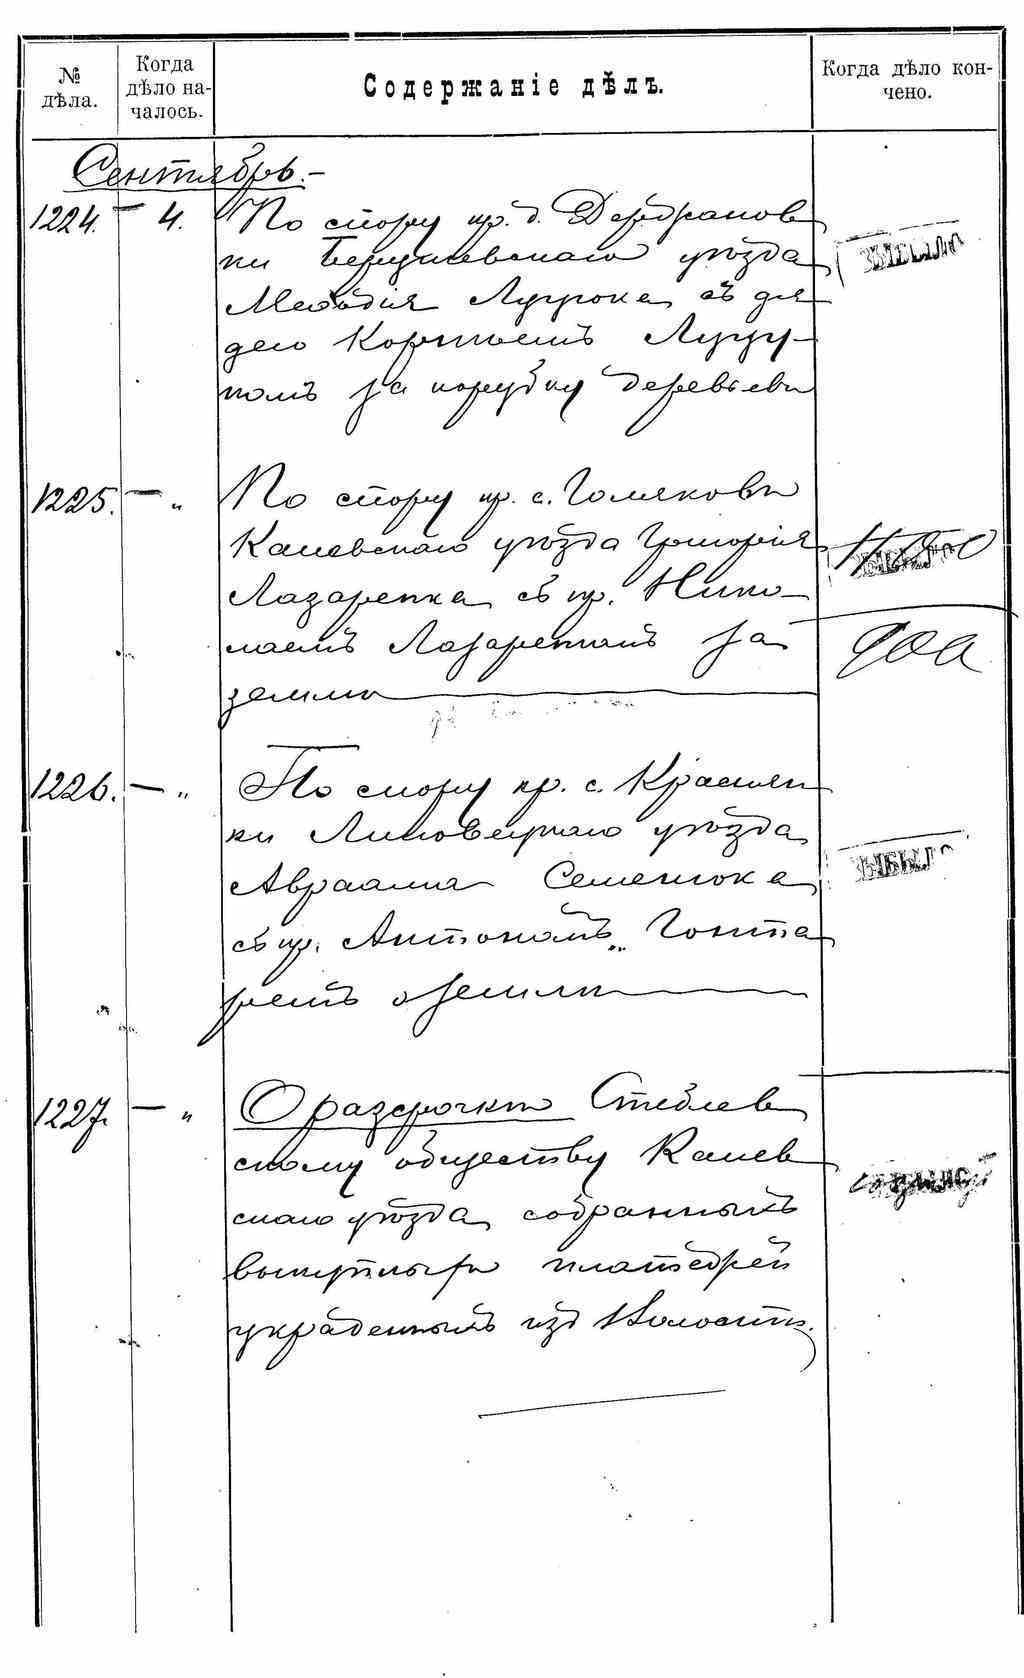 № дѣла.
Когда дѣло началось.
Содержаніе дѣлъ.
Когда дѣло кончено.
Сентябрь.-
1224. — 4. По спору кр. д.
ки Бердичевскаго уѣзда
Меѳодія Луцюка съ дя-
дею Корнѣемъ Луцю-
комъ за порубку деревьевъ
ВЫБЫЛО
1225. — „ По спору кр. с. Голяковъ
Каневскаго уѣзда Григорія
Лазаренка съ кр. Нико-
лаемъ Лазаренкомъ за
землю
1226. — „ По спору кр. с. Краснян
ки Липовецкаго уѣзда
Авраама Семенюка
съ кр. Антономъ Гонта
ремъ о землѣ
ВЫБЫЛО
1227. — „ О разсрочкѣ Стеблев
скому обществу Канев
скаго уѣзда собранныхъ
выкупныхъ платежей
украденныхъ изъ Волости.